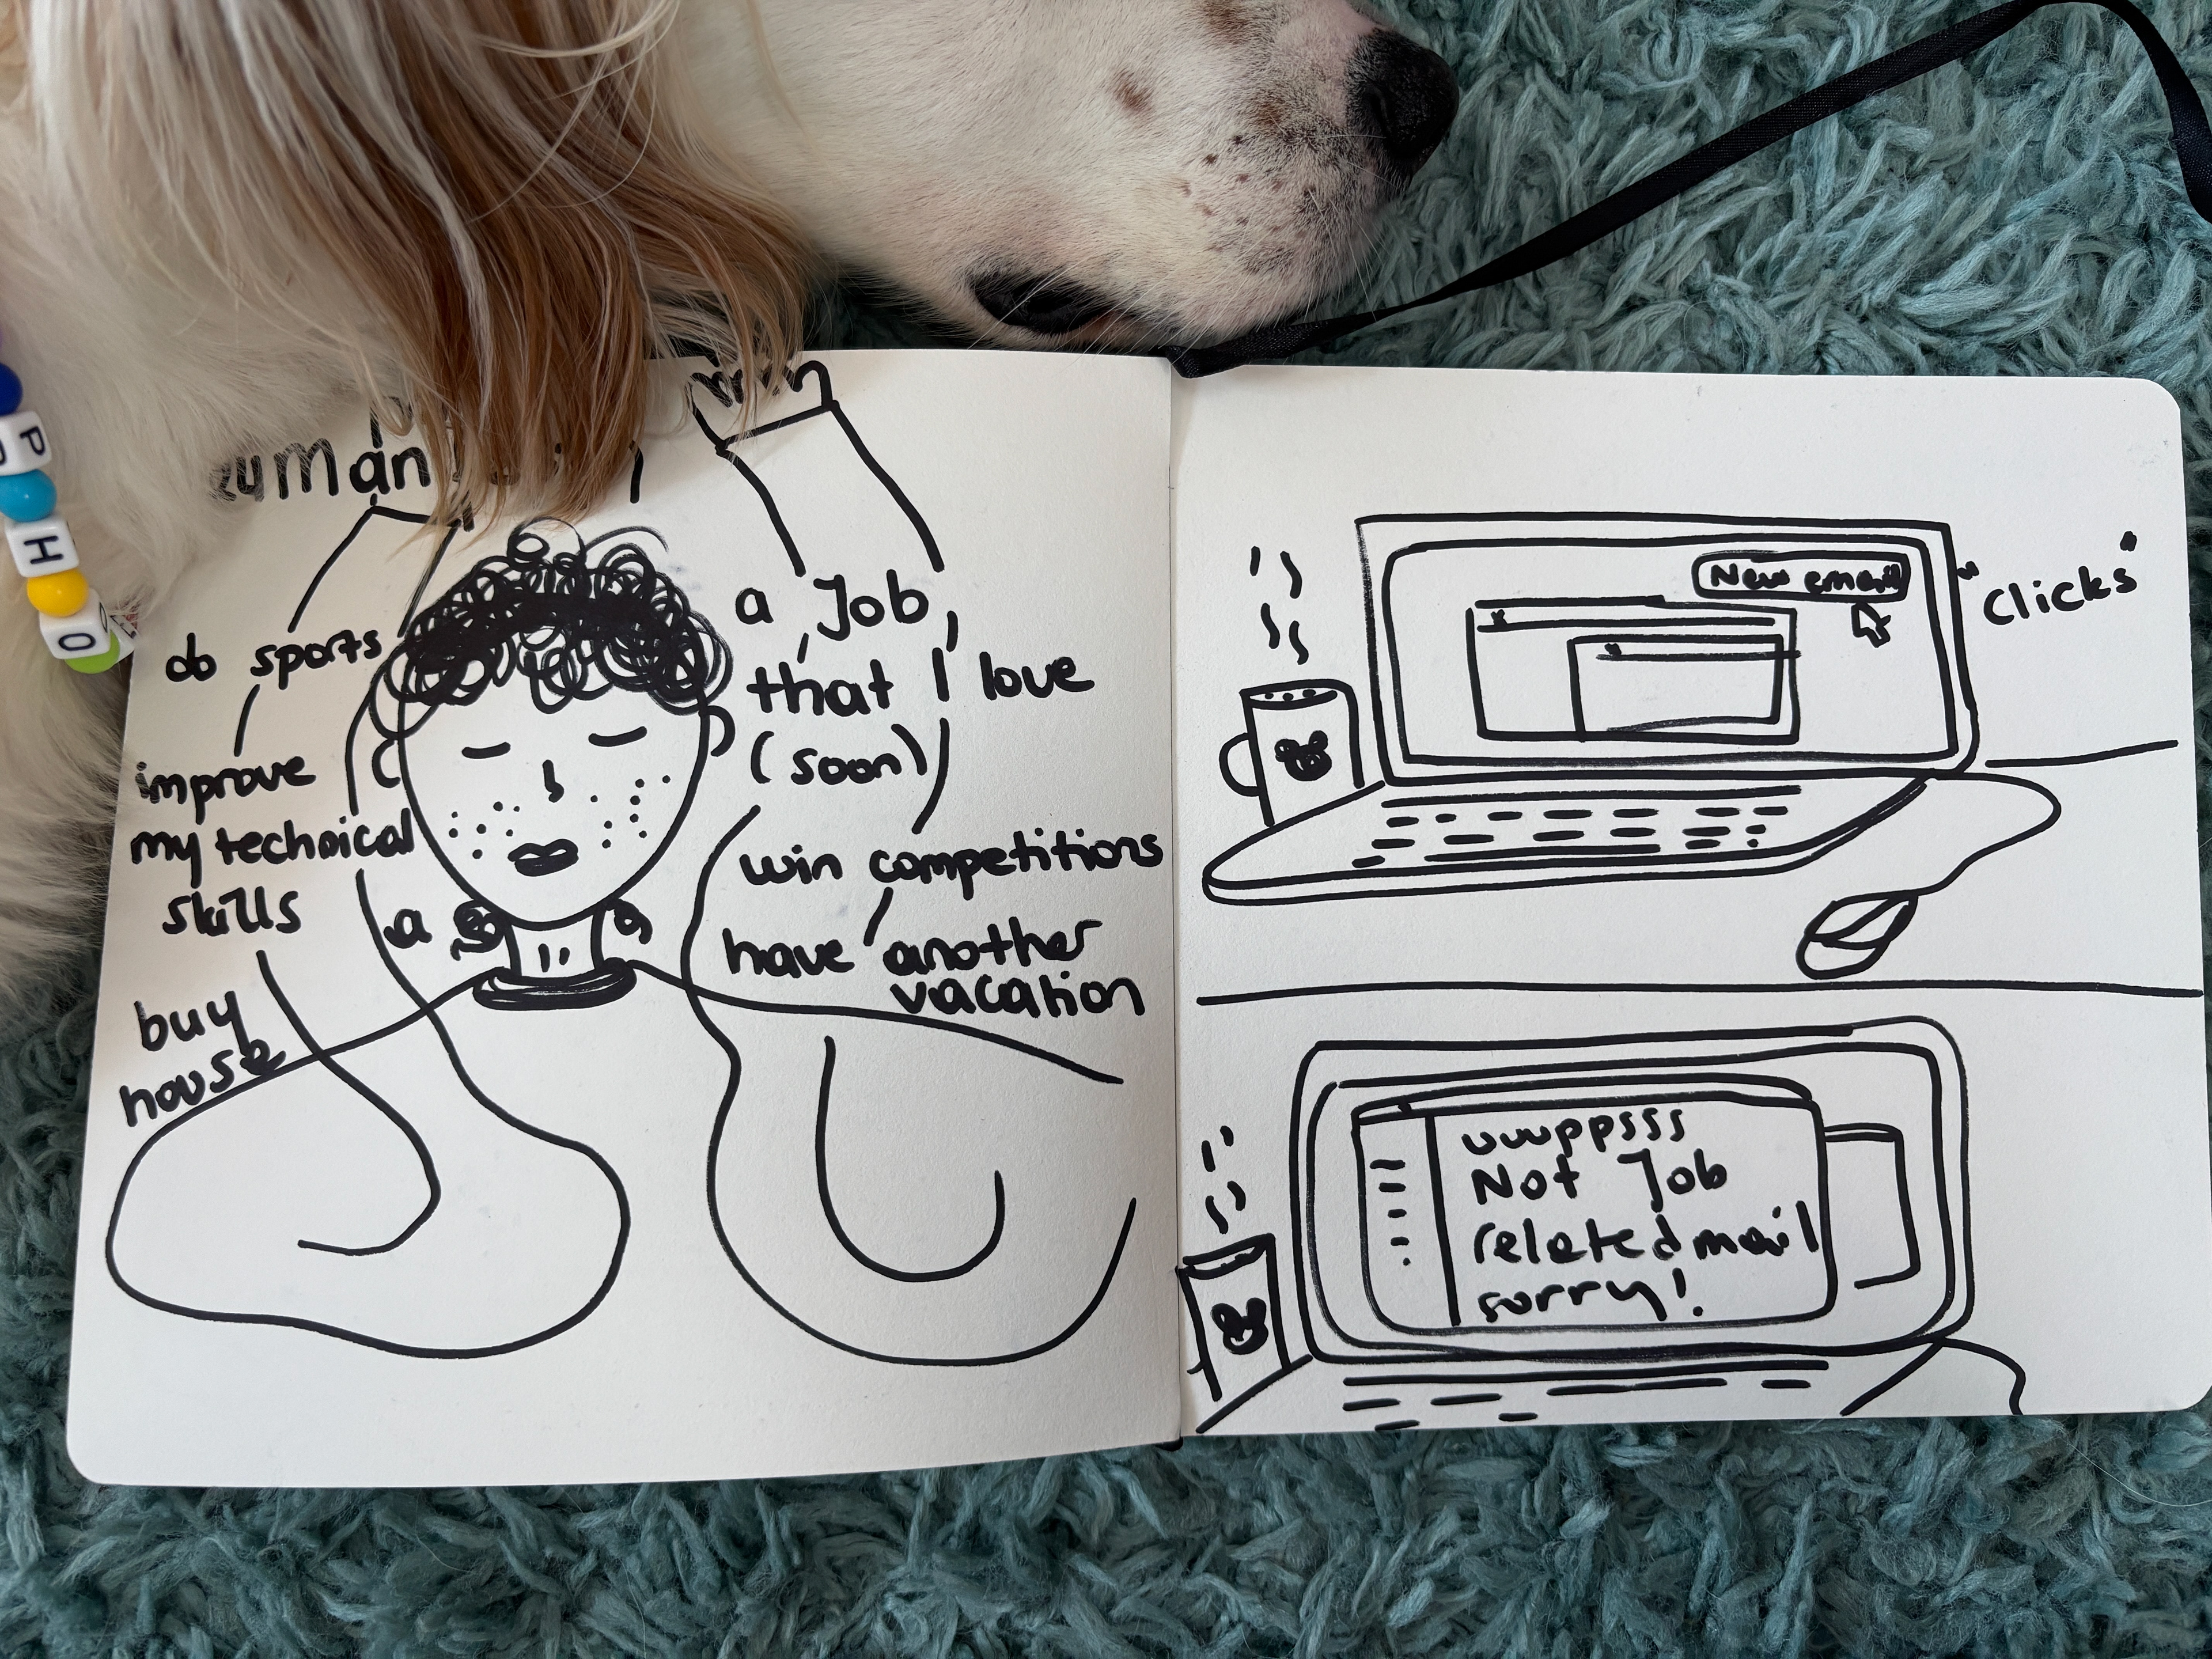 do sports
improve
my technical
skills
a
buy
house
a Job
that I love
(soon)
win competitions
have another
vacation
New email
"Clicks"
uuuppsss
Not Job
related mail
sorry!
P
H
O